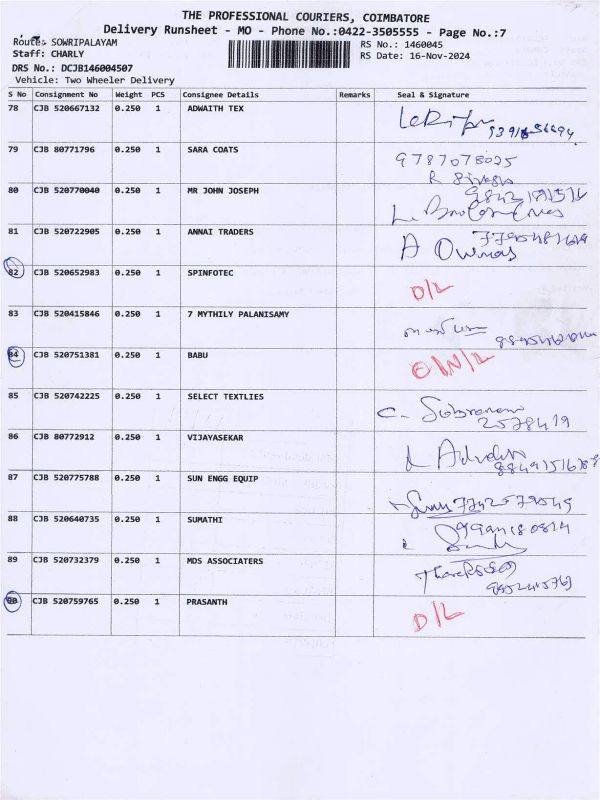 THE PROFESSIONAL COURIERS, COIMBATORE
Delivery Runsheet - MO - Phone No.:0422-3505555 - Page No.:7
Route: SOWRIPALAYAM
Staff: CHARLY
DRS No.: DCJB146004507
Vehicle: Two Wheeler Delivery
RS No.: 1460045
RS Date: 16-Nov-2024
S No Consignment No Weight PCS Consignee Details Remarks Seal & Signature
78 CJB 520667132 0.250 1 ADWAITH TEX
79 CJB 80771796 0.250 1 SARA COATS
9787078025
80 CJB 520770040 0.250 1 MR JOHN JOSEPH
81 CJB 520722905 0.250 1 ANNAI TRADERS
82 CJB 520652983 0.250 1 SPINFOTEC D/L
83 CJB 520415846 0.250 1 7 MYTHILY PALANISAMY
84 CJB 520751381 0.250 1 BABU
85 CJB 520742225 0.250 1 SELECT TEXTLIES
2578419
86 CJB 80772912 0.250 1 VIJAYASEKAR
87 CJB 520775788 0.250 1 SUN ENGG EQUIP
88 CJB 520640735 0.250 1 SUMATHI
89 CJB 520732379 0.250 1 MDS ASSOCIATERS
90 CJB 520759765 0.250 1 PRASANTH D/L